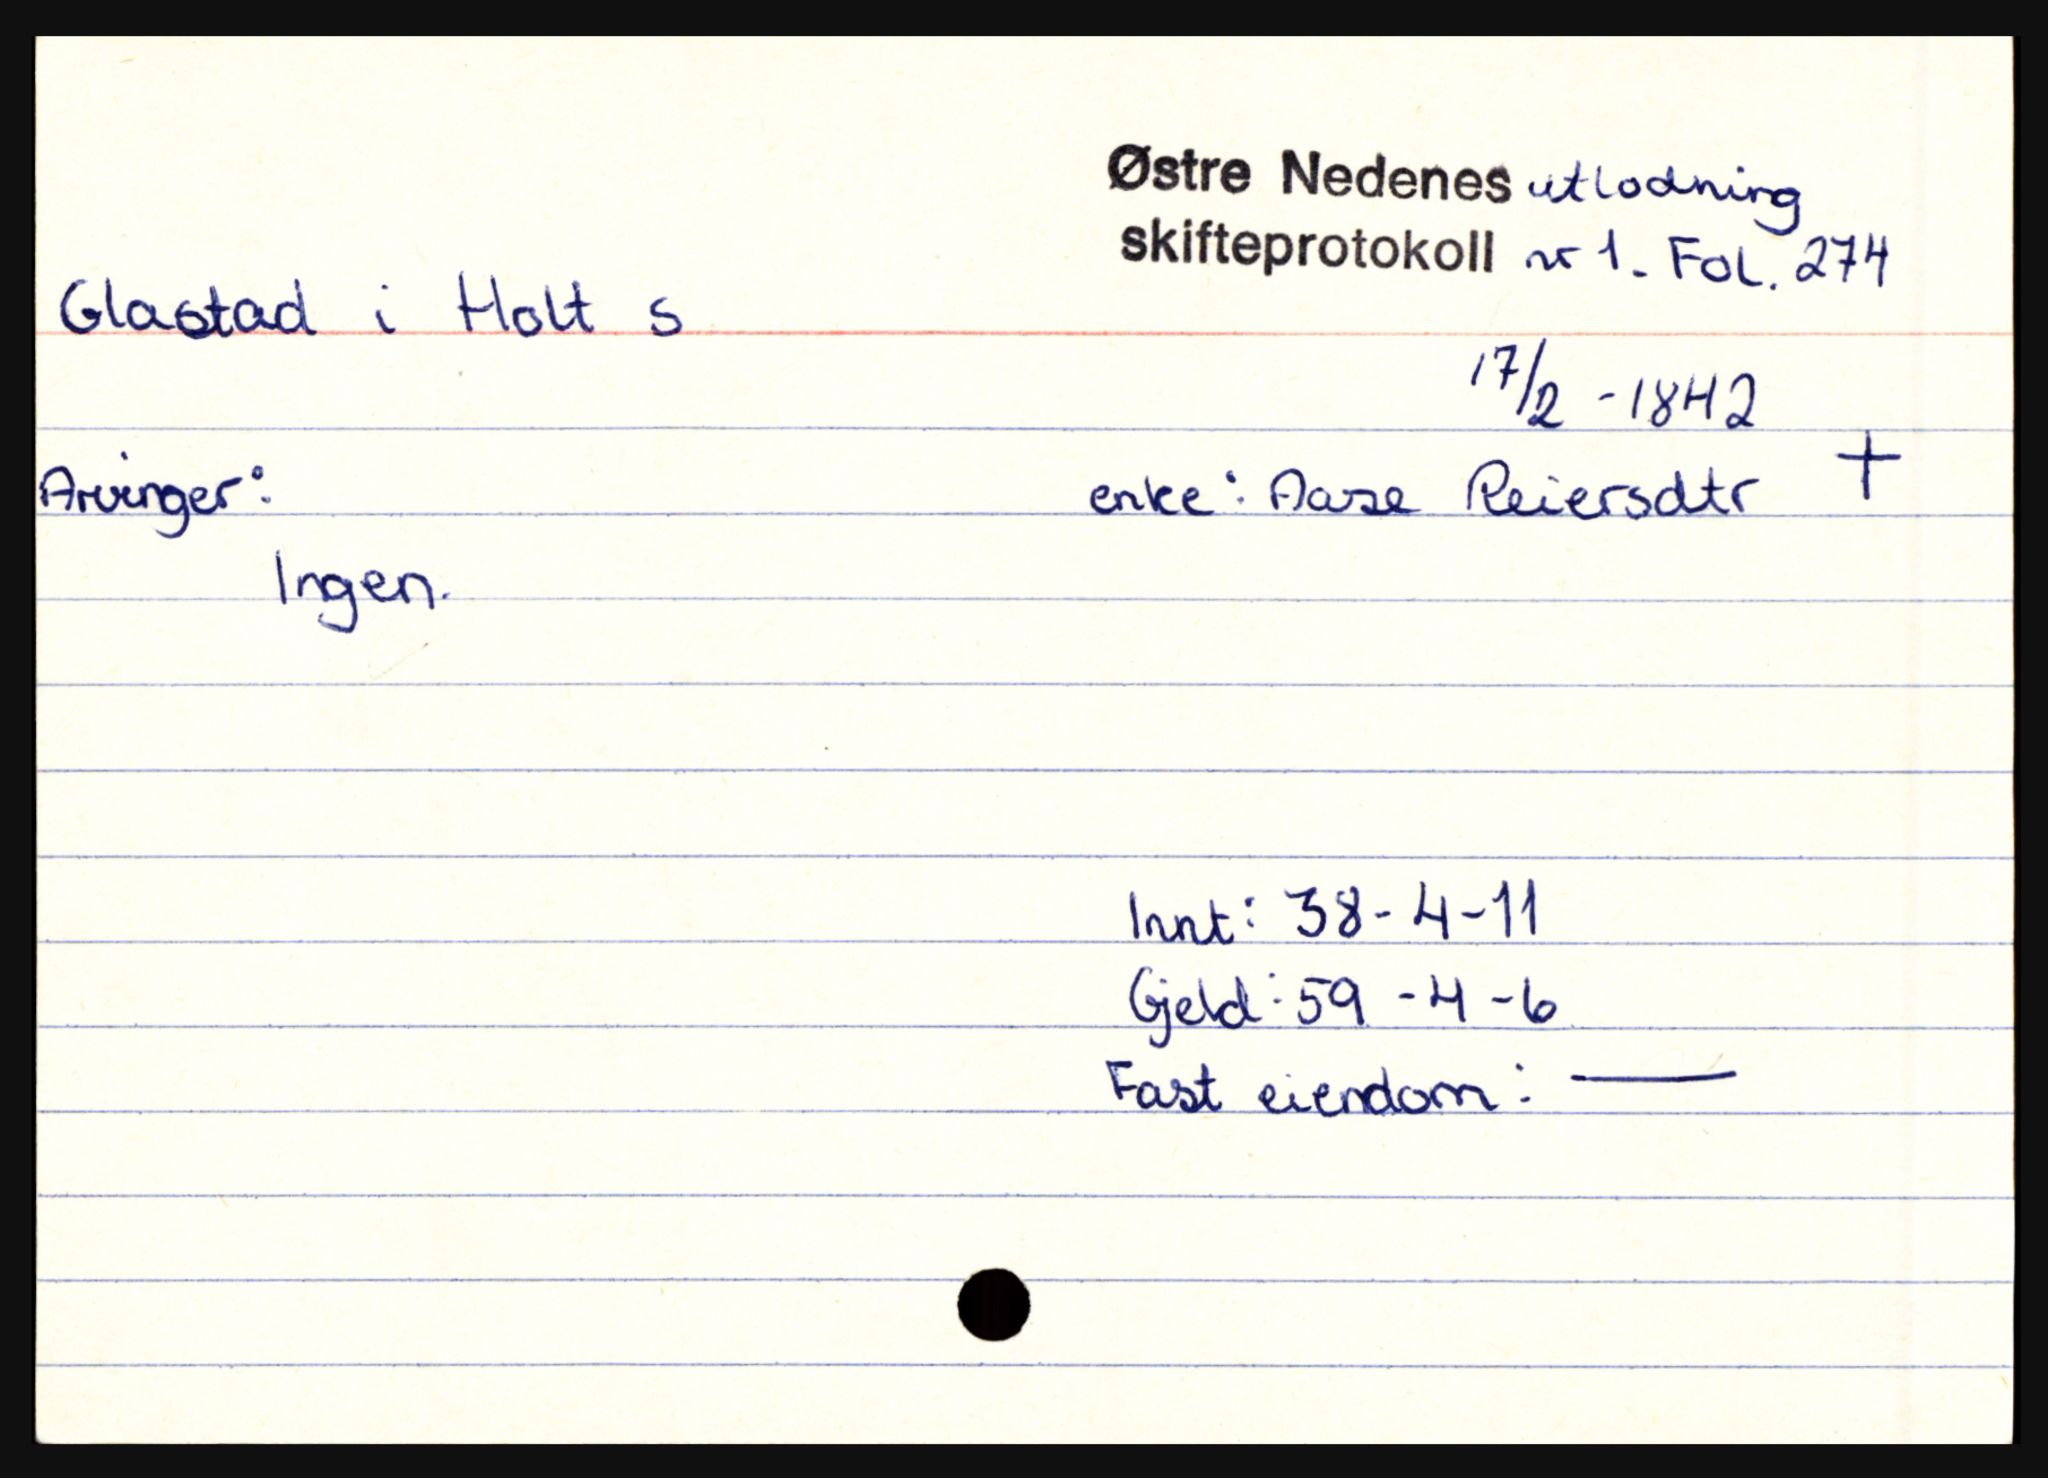 Østre Nedenes utlodning
skifteprotokoll nr 1. Fol. 274
Glastad i Holt s
17/2 - 1842
Arvinger:
enke: Aase Reiersdtr †
Ingen.
Innt: 38 - 4 - 11
Gjeld: 59 - 4 - 6
Fast eiendom: —